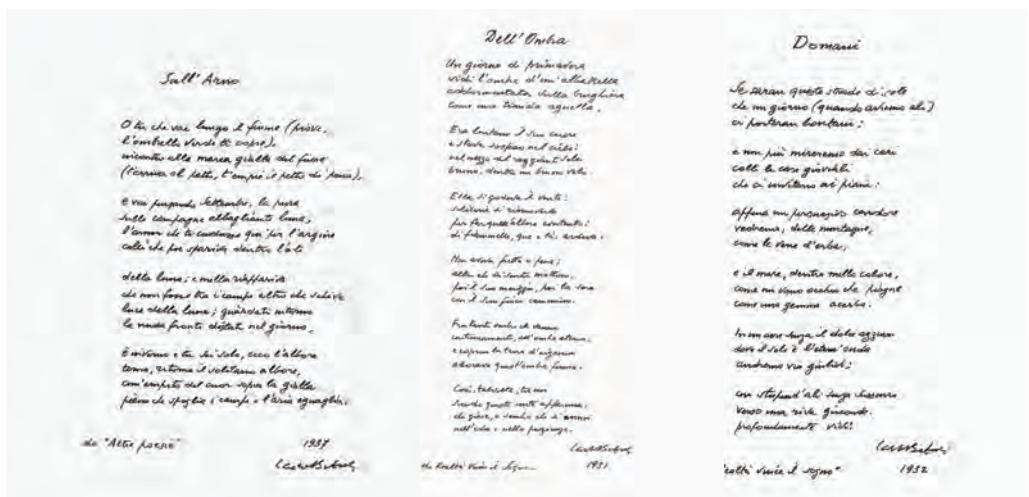 Sull'Arno
O tu che vai lungo il fiume (piove,
l'ombrello verde ti copre),
incontro alla marea gialla del fiume
(t'arriva al petto, t'empie il petto di
e vai pensando Settembre, la
sulle campagne abbagliante luna,
l'amor che te condusse qui per l'argine
che poi sparisti dentro l'
della luna; e nulla
che non fosse tra i campi altro che
luce della luna; guàrdati intorno
la nuda fronte nel giorno.
È inverno e tu sei solo, ecco l'albore
torna, ritorna il solitario albore,
com'empito del cuor sopra la gialla
piena che spoglia i campi e l'aria eguaglia.
da "Altre poesie" 1937
Dell'Ombra
Un giorno di primavera
vidi l'ombra d'un'albatrella
addormentata sulla brughiera
come una timida agnella.
Era lontano il suo cuore
e stava sospeso nel cielo;
nel mezzo del raggiante sole
bruno, dentro un bruno velo.
Ella si godeva il vento;
solitaria si
per far quell'albero contento;
di fiammelle, qua e là, ardeva.
Non aveva fretta o pena;
altro che di sentir mattino,
poi il suo meriggio, poi la sera
con il suo fioco cammino.
Fra tante ombre che vanno
continuamente, all'ombra eterna,
e copron la terra d'inganno
adoravo quest'ombra ferma.
Così, talvolta, tra noi
scende questa mite apparenza,
che giace, e sembra che si annoi
nell'erba e nella pazienza.
1931
Domani
Se saran queste strade di sole
che un giorno (quando avremo ali)
ci porteran lontani;
e non più mireremo dai cari
colli le case gioviali
che ci invitano ai piani;
appena un candore
vedremo, delle montagne,
come le vene d'erba;
e il mare, dentro molle calore,
come un vano occhio che piagne
come una gemma acerba.
In un aere senza il dolce azzurro
dove il sole è
andremo via giulivi;
con stupend'ali senza sussurro
verso una riva gioconda.
profondamente vivi!
vince il sogno" 1932